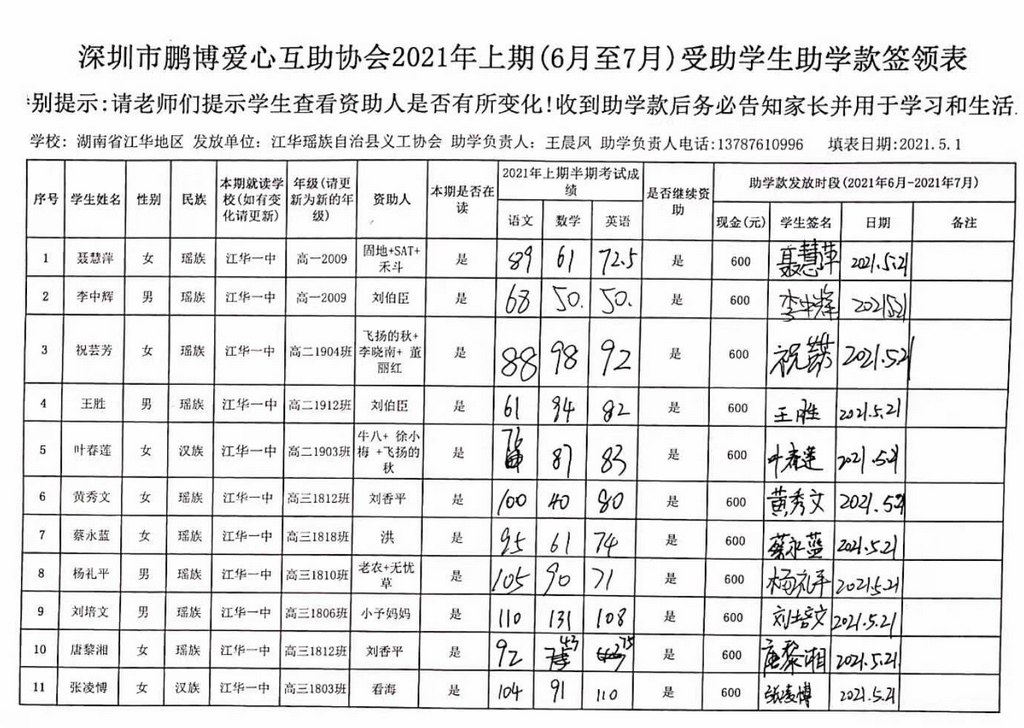 深圳市鹏博爱心互助协会2021年上期(6月至7月)受助学生助学款签领表
别提示:请老师们提示学生查看资助人是否有所变化!收到助学款后务必告知家长并用于学习和生活.
学校: 湖南省江华地区 发放单位: 江华瑶族自治县义工协会 助学负责人: 王晨风 助学负责人电话:13787610996 填表日期:2021.5.1
序号 学生姓名 性别 民族 本期就读学校(如有变化请更新) 年级(请更新为新的年级) 资助人 本期是否在读 2021年上期半期考试成绩 是否继续资助 助学款发放时段(2021年6月-2021年7月)
语文 数学 英语 现金(元) 学生签名 日期 备注
1 聂慧萍 女 瑶族 江华一中 高一2009 固地+SAT+禾斗 是 89 61 72.5 是 600 聂慧萍 2021.5.21
2 李中辉 男 瑶族 江华一中 高一2009 刘伯臣 是 68 50. 50. 是 600 李中辉 2021.5.21
3 祝芸芳 女 瑶族 江华一中 高二1904班 飞扬的秋+李晓南+ 董丽红 是 88 98 92 是 600 祝芸芳 2021.5.21
4 王胜 男 瑶族 江华一中 高二1912班 刘伯臣 是 61 94 82 是 600 王胜 2021.5.21
5 叶春莲 女 汉族 江华一中 高二1903班 牛八+ 徐小梅 +飞扬的秋 是 76 87 83 是 600 叶春莲 2021.5.21
6 黄秀文 女 瑶族 江华一中 高三1812班 刘香平 是 100 40 80 是 600 黄秀文 2021.5.21
7 蔡永蓝 女 瑶族 江华一中 高三1818班 洪 是 95 61 74 是 600 蔡永蓝 2021.5.21
8 杨礼平 男 瑶族 江华一中 高三1810班 老农+无忧草 是 105 90 71 是 600 杨礼平 2021.5.21
9 刘培文 男 瑶族 江华一中 高三1806班 小子妈妈 是 110 131 108 是 600 刘培文 2021.5.21
10 唐黎湘 女 瑶族 江华一中 高三1812班 刘香平 是 92 43 75 是 600 唐黎湘 2021.5.21.
11 张凌博 女 汉族 江华一中 高三1803班 看海 是 104 91 110 是 600 张凌博 2021.5.21